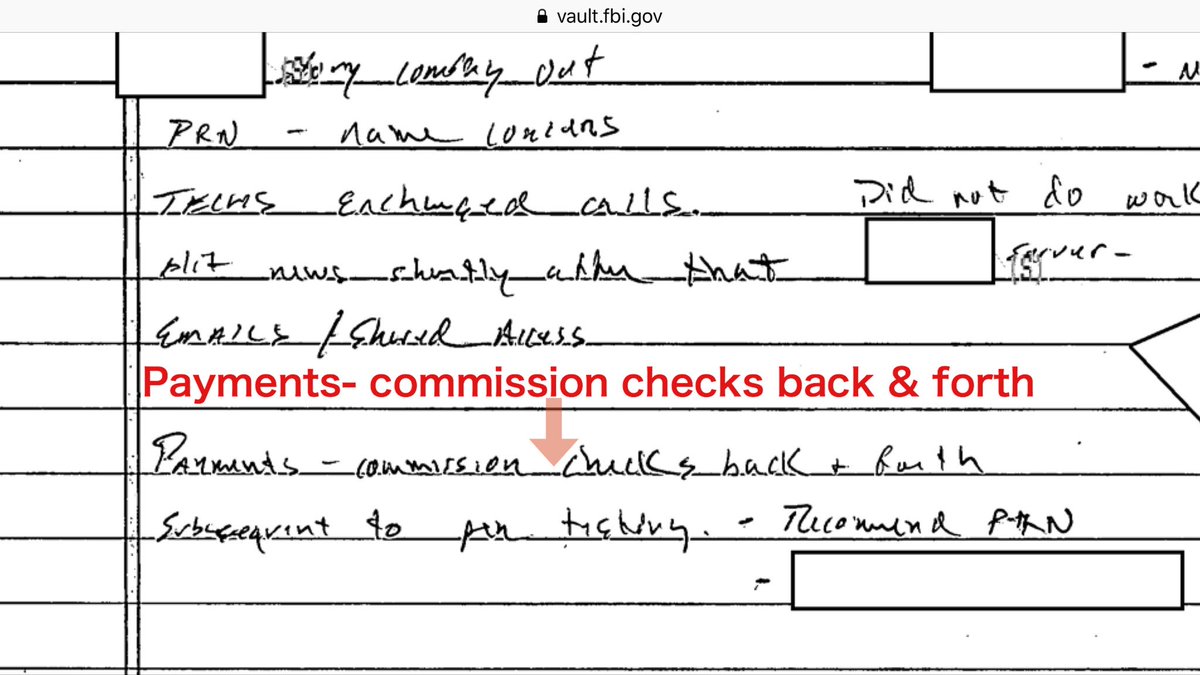 vault.fbi.gov
company out -
PRN - name concerns
TECHS Exchanged calls. Did not do work
news shortly after that server-
EMAILS / Shared Access
Payments- commission checks back & forth
Payments - commission checks back + forth
Subsequent to pen testing. - Recommend PRN
-